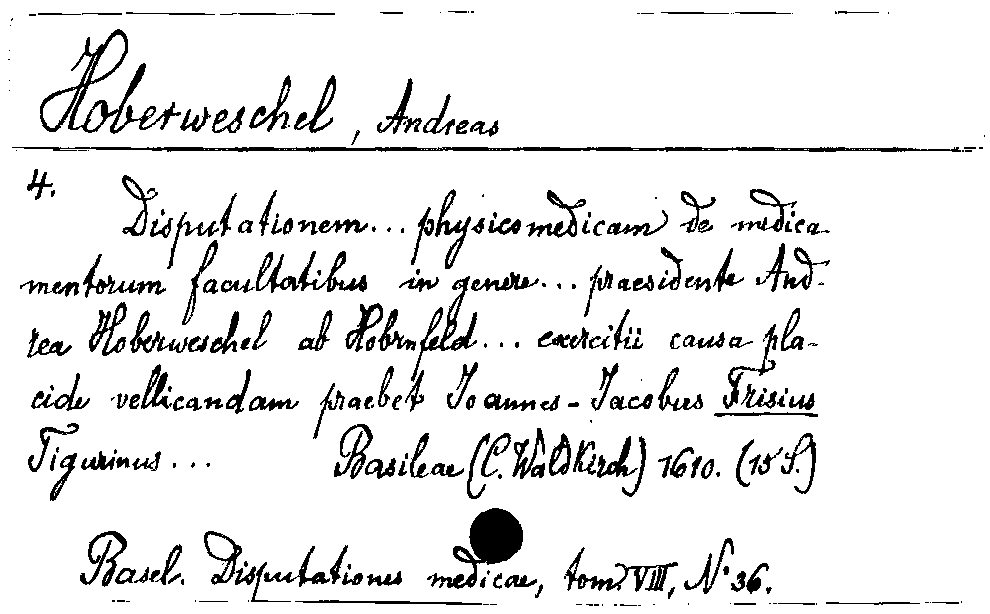 Hoberweschel, Andreas
4.
Disputationem... physicomedicam de medica-
mentorum facultatibus in genere... praesidente And-
rea Hoberweschel ab Hobernfeld... exercitii causa pla-
cide vellicandam praebet Joannes-Jacobus Frisius
Tigurinus...  Basileae (C. Waldkirch) 1610. (15 S.)
Basel. Disputationes medicae, tom. VIII, N° 36.